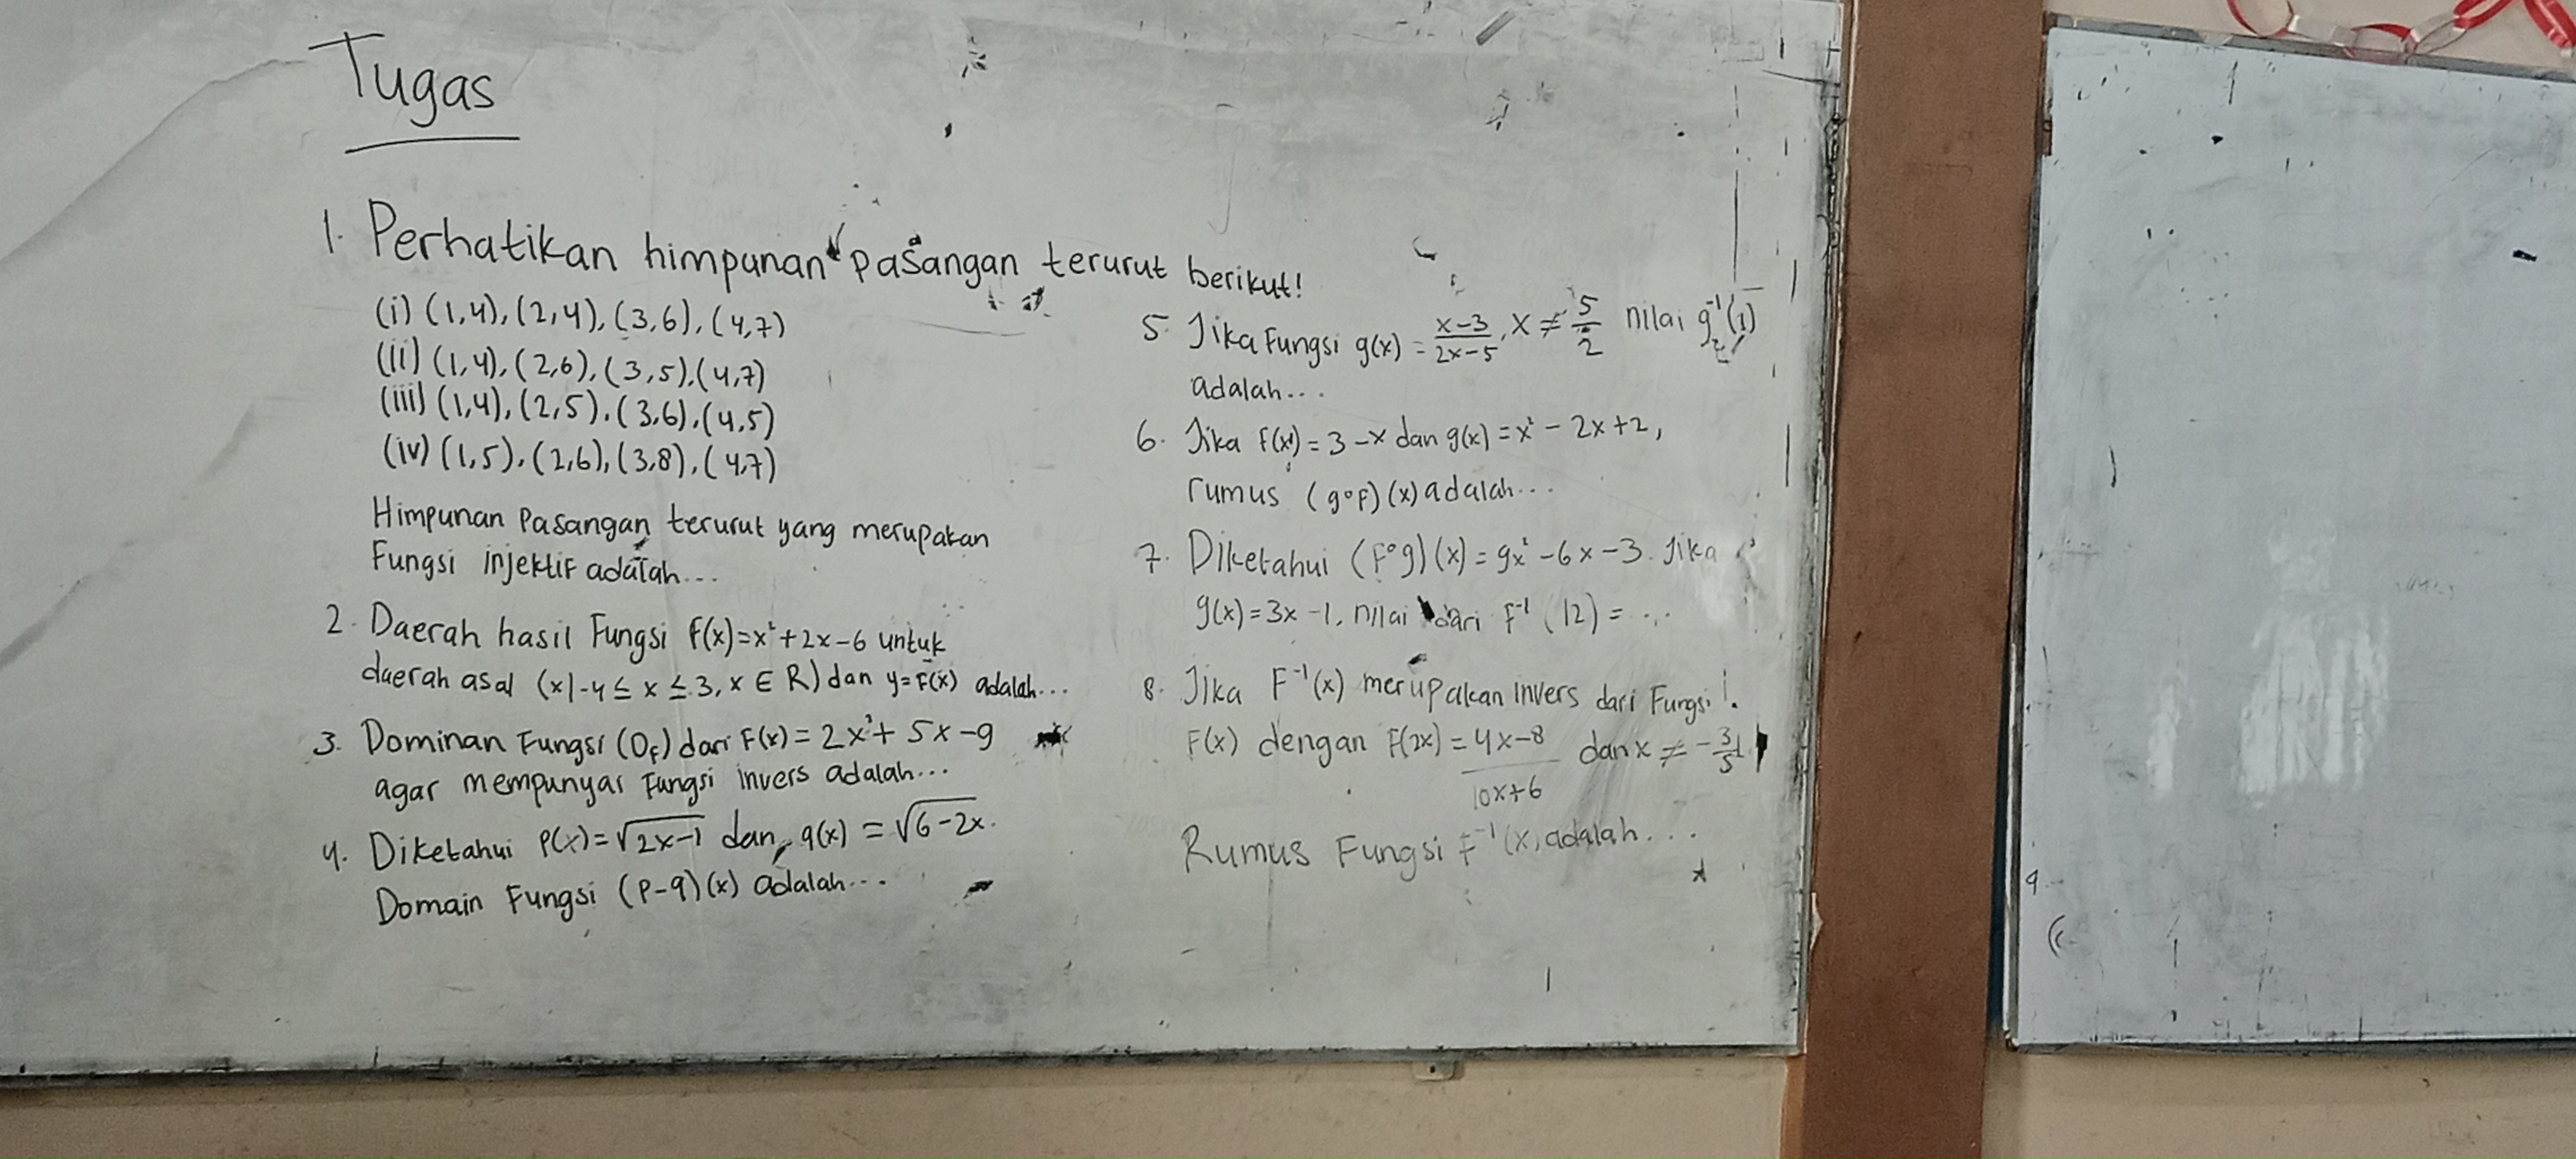 Tugas
1. Perhatikan himpunan pasangan terurut berikut!
(i) (1,4), (2,4), (3,6), (4,7)
(ii) (1,4), (2,6), (3,5), (4,7)
(iii) (1,4), (2,5), (3,6), (4,5)
(iv) (1,5), (2,6), (3,8), (4,7)
Himpunan Pasangan terurut yang merupakan
Fungsi injektif adalah...
2. Daerah hasil Fungsi f(x)=x²+2x-6 untuk
daerah asal (x|-4 ≤ x ≤ 3, x ∈ R) dan y=F(x) adalah...
3. Dominan Fungsi (D_F) dari F(x) = 2x²+ 5x-9
agar mempunyai Fungsi invers adalah...
4. Diketahui P(x)=√2x-1 dan q(x) = √6-2x.
Domain Fungsi (P-q)(x) adalah...
5. Jika Fungsi g(x) = x-3/2x-5, x ≠ 5/2 nilai g⁻¹(1)
adalah...
6. Jika F(x) = 3-x dan g(x) = x² - 2x+2,
rumus (g∘F)(x) adalah...
7. Diketahui (F∘g)(x) = 9x² -6x-3. Jika
g(x)=3x-1, nilai dari F⁻¹ (12) = ...
8. Jika F⁻¹(x) merupakan invers dari Fungsi
F(x) dengan F(2x) = 4x-8/10x+6 dan x ≠ -3/5
Rumus Fungsi F⁻¹(x) adalah...
9.